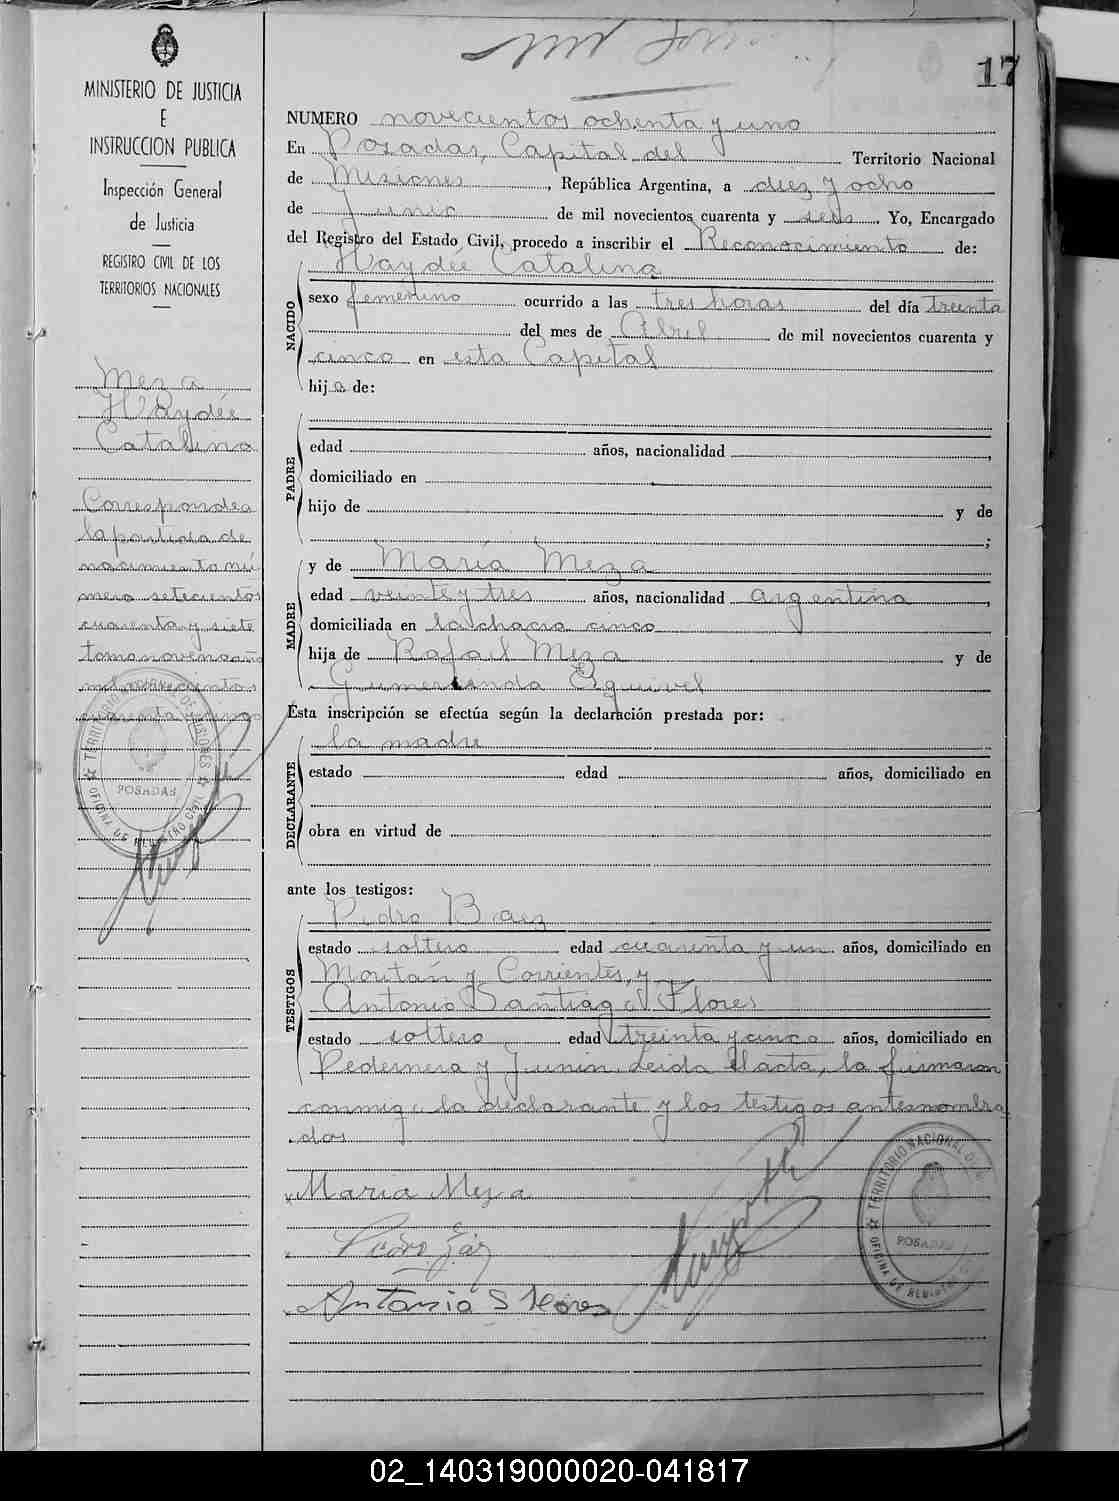 17
MINISTERIO DE JUSTICIA
E
INSTRUCCION PUBLICA
Inspección General
de Justicia
REGISTRO CIVIL DE LOS
TERRITORIOS NACIONALES
Meza
Haydée
Catalina
Corresponde a
la partida de
nacimiento nú
mero setecientos
cuarenta y siete
tomo noveno año
mil novecientos
cuarenta y cinco
TERRITORIO NACIONAL DE MISIONES
POSADAS
OFICINA DE REGISTRO CIVIL
NUMERO novecientos ochenta y uno
En Posadas, Capital del Territorio Nacional
de Misiones, República Argentina, a diez y ocho
de Junio de mil novecientos cuarenta y seis. Yo, Encargado
del Registro del Estado Civil, procedo a inscribir el Reconocimiento de:
Haydée Catalina
NACIDO
sexo femenino ocurrido a las tres horas del día treinta
del mes de Abril de mil novecientos cuarenta y
cinco en esta Capital
hija de:
PADRE
edad años, nacionalidad ,
domiciliado en
hijo de y de
;
MADRE
y de María Meza
edad veinte y tres años, nacionalidad argentina,
domiciliada en la chacra cinco
hija de Rafael Meza y de
Gumercinda Esquivel
Esta inscripción se efectúa según la declaración prestada por:
DECLARANTE
la madre
estado edad años, domiciliado en
obra en virtud de
ante los testigos:
TESTIGOS
Pedro Baez
estado soltero edad cuarenta y un años, domiciliado en
Moután y Corrientes, y
Antonio Santiago Flores
estado soltero edad treinta y cinco años, domiciliado en
Pedernera y Junín. Leida el acta, la firmaron
conmigo la declarante y los testigos antesnombra
dos
Maria Meza
Pedro Báez
Antonio S Flores
TERRITORIO NACIONAL DE
POSADAS
OFICINA DE REGISTRO
02_140319000020-041817